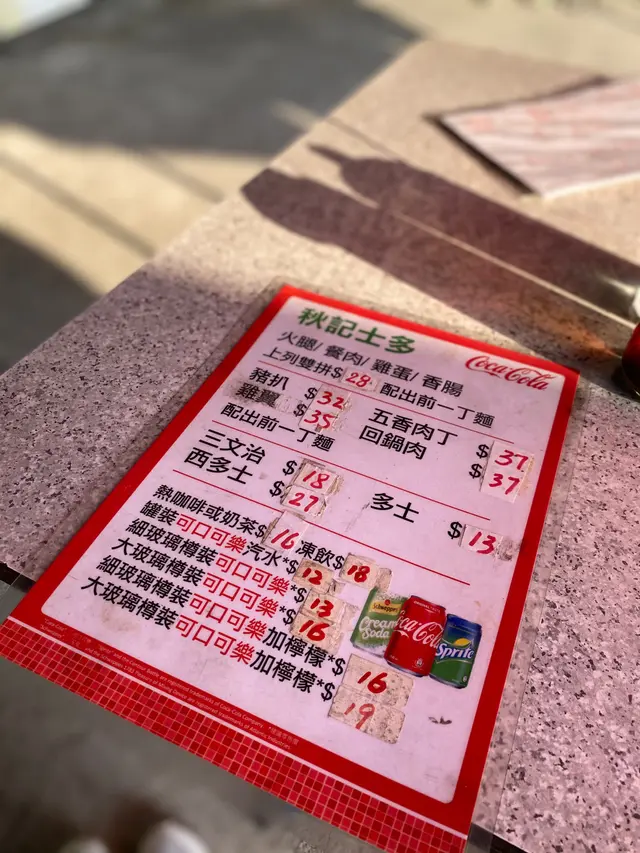 秋記士多
Coca-Cola
火腿/ 餐肉/ 雞蛋/ 香腸
上列雙拼$28 配出前一丁麵
豬扒 $32
雞翼 $35
配出前一丁麵
五香肉丁 $37
回鍋肉 $37
三文治 $18
西多士 $27
多士 $13
熱咖啡或奶茶$16 凍飲$18
罐裝可口可樂汽水*$12
細玻璃樽裝可口可樂*$13
大玻璃樽裝可口可樂*$16
細玻璃樽裝可口可樂加檸檬*$16
大玻璃樽裝可口可樂加檸檬*$19
Schweppes
Cream Soda
Coca-Cola
Sprite